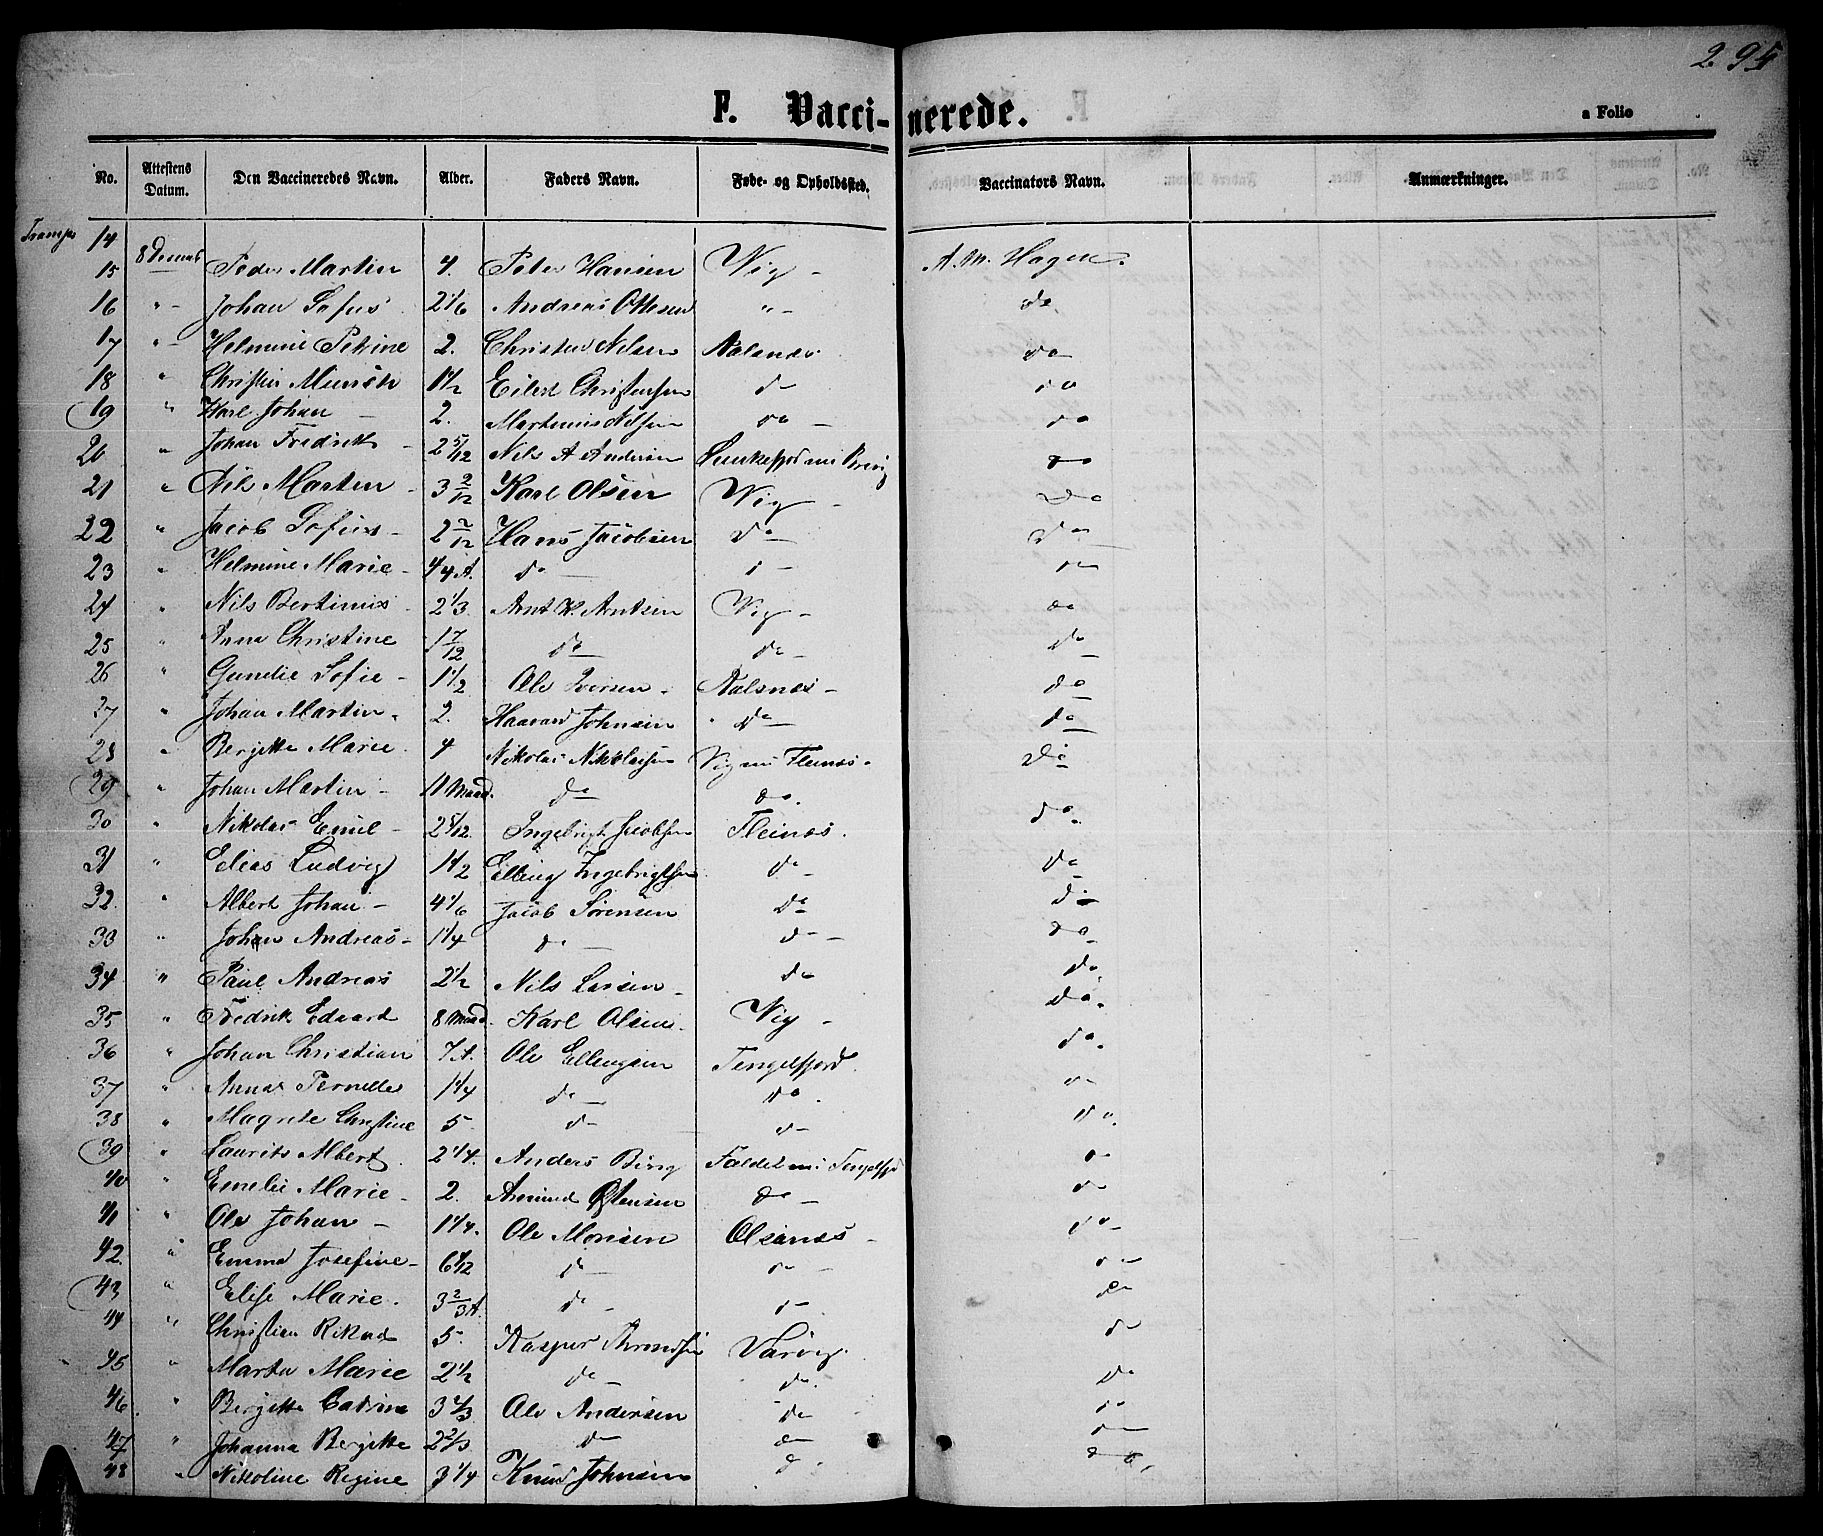 295
F. Vaccinerede.
a Folio
No. Attestens Datum. Den Vaccineredes Navn. Alder. Faders Navn. Føde- og Opholdssted. Vaccinators Navn. Anmærkninger.
14
15 Peder Martin 4. Peter Hansen Vig - A. M. Hagen.
16 "- Johan Sofus 2 1/6 Andreas Ottesen "- do.
17 "- Helmine Petrine 2. Christen Nilsen Aalsnes do
18 " 1 1/2 Eilert Christensen do do
19 " Karl Johan - 2. Martinus Nilsen do - do
20 " Johan Fredrik - 2 5/12 Nils A Andersen do
21 " Nils Martin - 3 2/12 Karl Olsen Vig - do
22 " Jacob Sofus - 2 2/12 Hans Jacobsen do do
23 " Helmine Marie - do - do
24 " Nils Bertinus - 2 1/3 Arnt H. Arntsen Vig - do
25 " Anna Christine 1 7/12 do do - do
26 " Sofie - 1 1/2 Ole Iversen - Aalsnes - do
27 " Johan Martin - 2. Haavard Johnsen do do
28 " Bergitte Marie 4 Nikolai Nikolaisen Vig Fleines - do
29 " Johan Martin - 11 Maad. do do. do
30 " Nikolai Emil - 2 5/12. Ingebrigt Jacobsen Fleines. do.
31 " Elias Ludvig 1 1/2 Elling Ingebrigtsen do - do
32. " Albert Johan - 4 1/6 Jacob Sørensen do do
33 " Johan Andreas - 1 1/4 do - do - do
34 " Paul Andreas 2 1/2 Nils Larsen - do do
35 " Fredrik Edvard 8 Maad. Karl Olsen. Vig - do.
36 " Johan Christian 7 A. Ole Ellingsen Tengelfjord. do.
37 " Anna Pernelle 1 1/4 do - do. do
38 " Magrete Christine 5 do - do do.
39 " Laurits Albert 2 1/4. Anders Bing Faldet Tengelfjd do
40 " Emelie Marie - 2. Amund Østensen do - do
41 " Ole Johan - 1 1/4. Ole Monsen Olsanes - do
42. " Emma Josefine - 6 1/12 do do - do
43 " Elise Marie. 3 2/3 A. do - do do
44 " Christian Rikard 5. Kasper Varvig. do
45 " Marta Marie 2 1/2 do - do. do
46 " Bergitte Catrine Ole Andersen do do
47 " Johanna Bergitte 2 2/3 do do do
48 " Nikoline Regine 3 1/4 Knud Johnsen do do